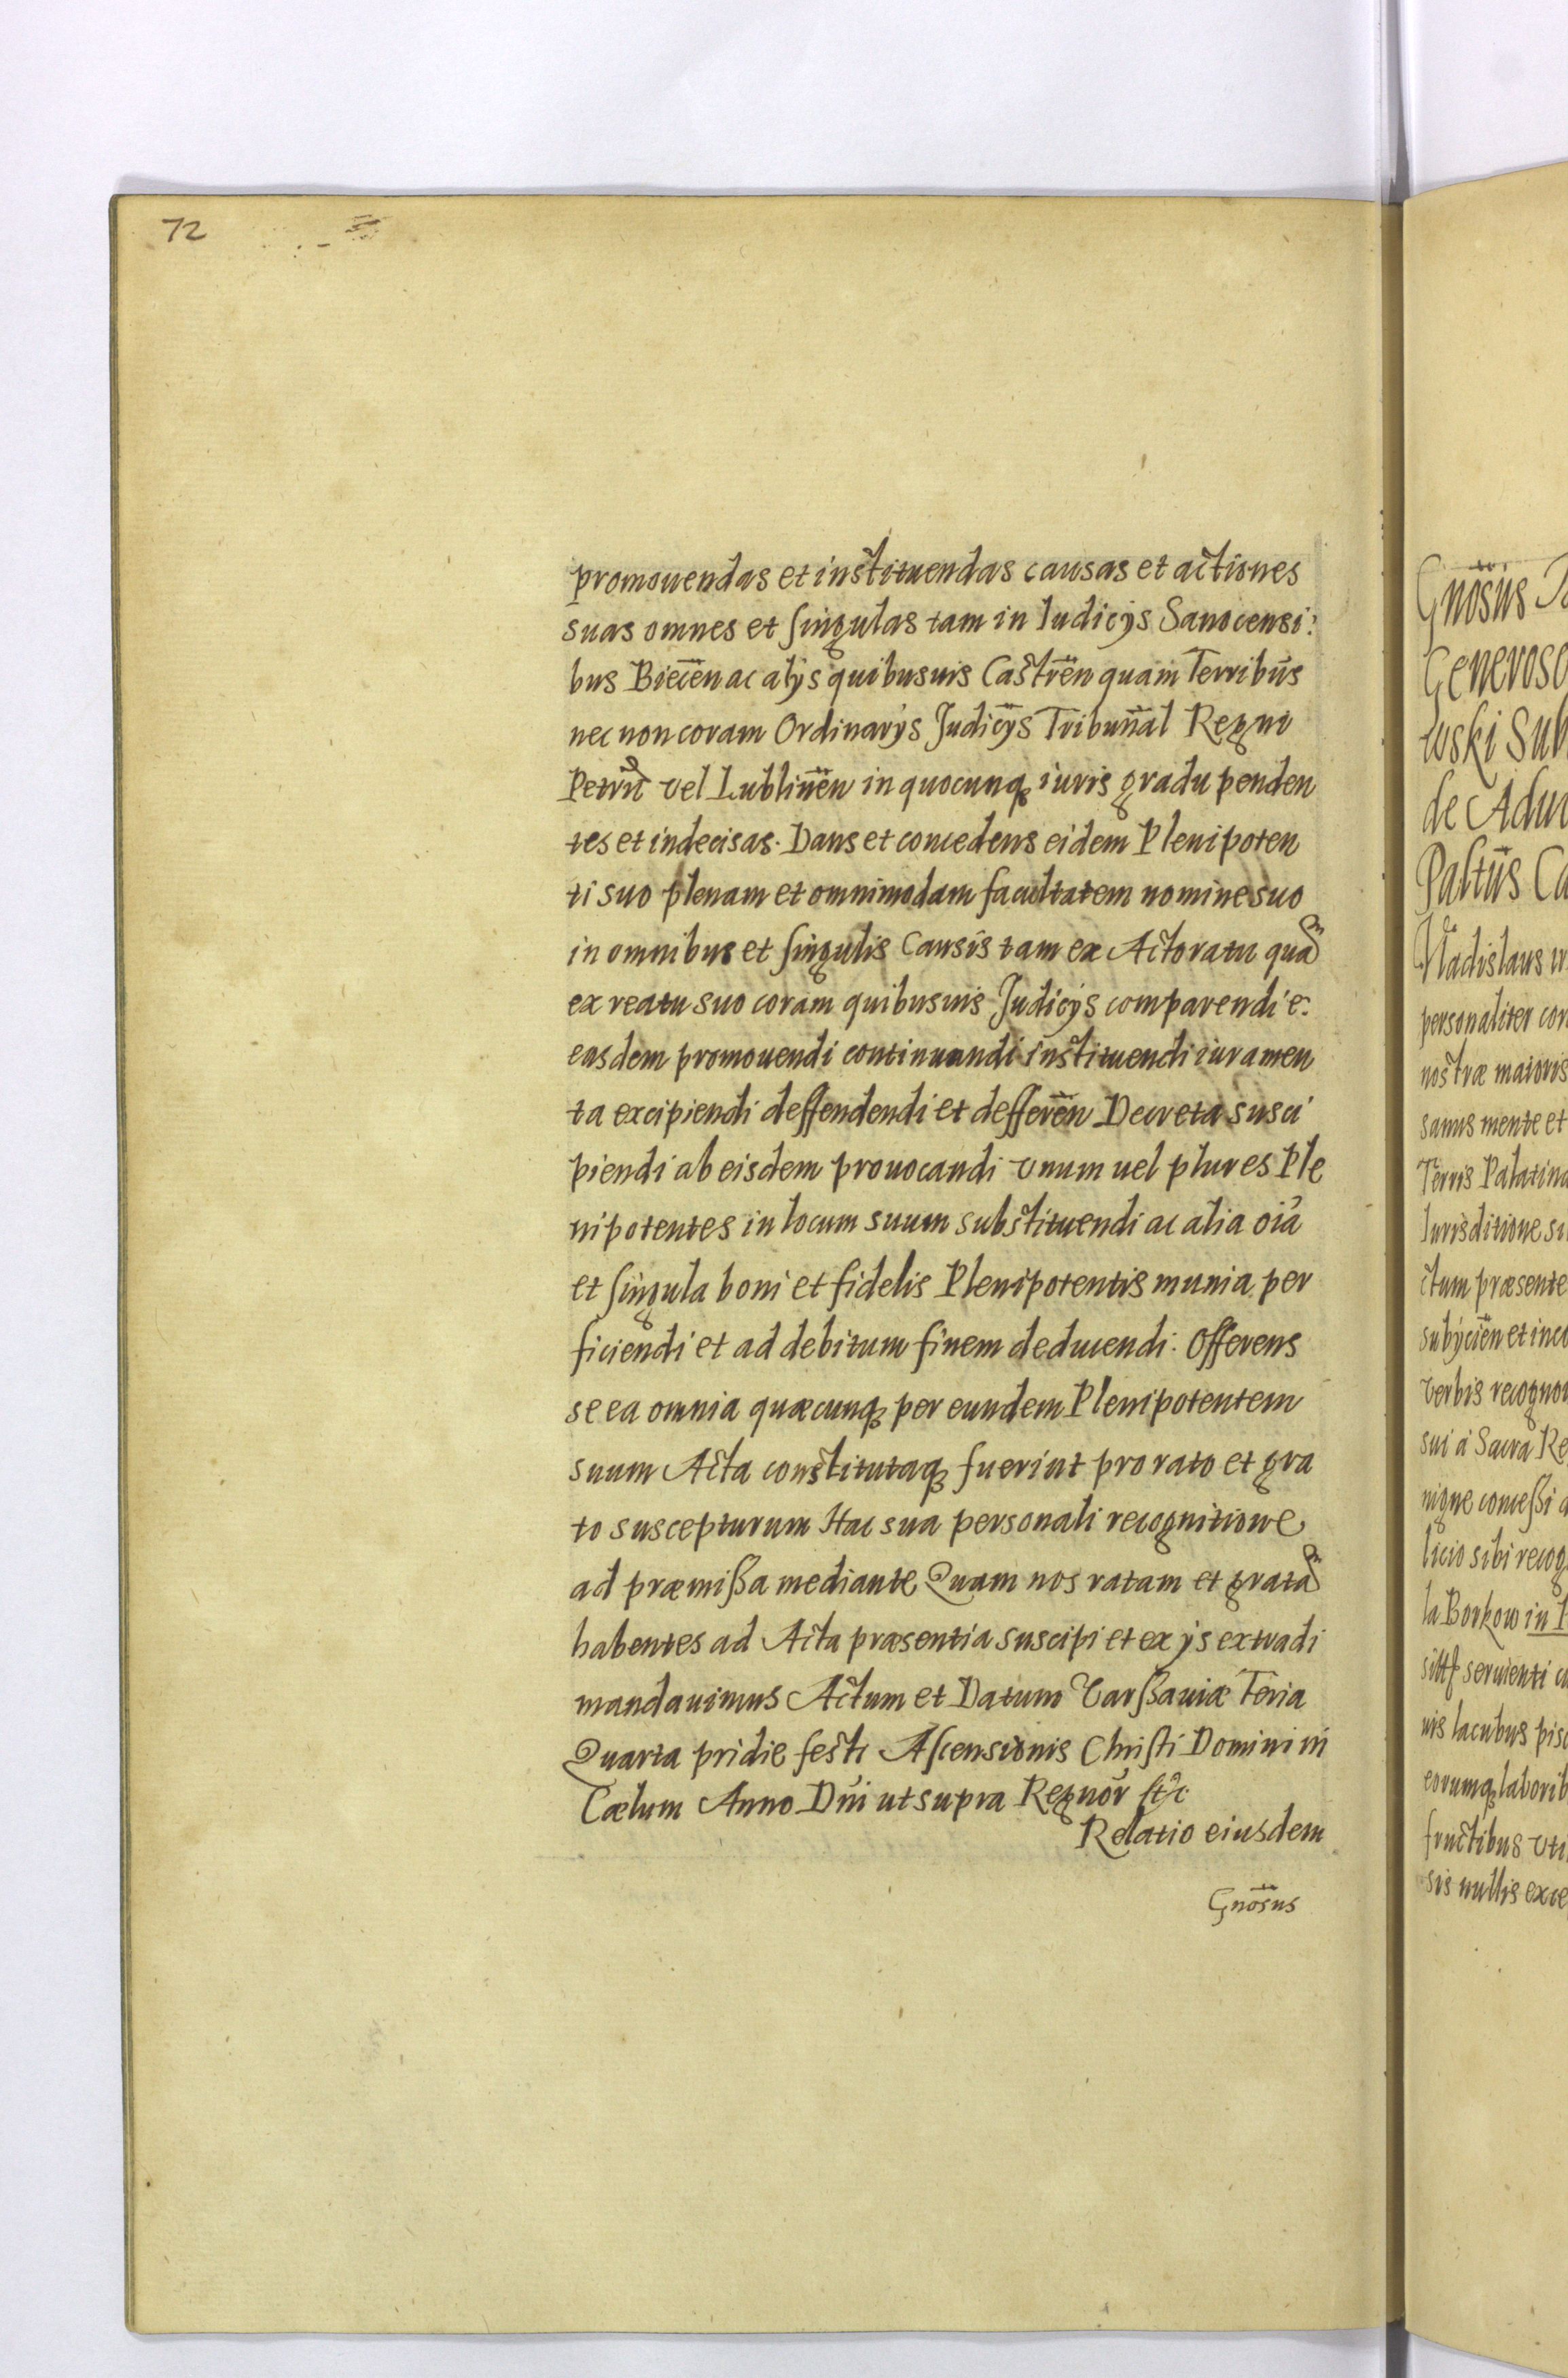 72
promouendas et instituendas causas et actiones
suas omnes et singulas tam in Iudicijs Sanocensi:
bus Biecen̄ ac alijs quibusuis Castren̄ quam Terribus
nec non coram Ordinarijs Judicijs Tribunal̄ Regni
vel Lublinen̄ in quocunq iuris gradu penden
tes et indecisas. Dans et concedens eidem Plenipoten
ti suo plenam et omnimodam facultatem nomine suo
in omnibus et singulis Causis tam ex Actoratu quā
ex reatu suo coram quibusuis Judicijs comparendi e:
easdem promouendi continuandi instituendi iuramen
ta excipiendi deffendendi et defferen̄ Decreta susci
piendi ab eisdem prouocandi vnum uel plures Ple
nipotentes in locum suum substituendi ac alia oīa
et singula boni et fidelis Plenipotentis munia per
ficiendi et ad debitum finem deducendi. Offerens
se ea omnia quæcunq per eundem Plenipotentem
suum Acta constitutaq fuerint pro rato et gra
to suscepturum Hac sua personali recognitione
ad præmißa mediante Quam nos ratam et gratā
habentes ad Acta præsentia suscipi et ex ijs extradi
mandauimus Actum et Datum Varßauiæ Feria
Quarta pridie festi Ascensionis Christi Domini in
Cælum Anno Dn̄i ut supra Regnor̄ etc
Relatio eiusdem
Gnōsus
Gnōsus
Generoso
wski Sub
de Adu
Paltūs Ca
Vladislaus
personaliter cor
nostræ maioris
sanus mente et
Terris Palatina
Iurisditione su
ctum præsente
subijcien̄ et inco
Verbis recogno
sui a Sacra Re
nigne conceßi a
licio sibi recog
la Borkow in
seruienti
uis lacubus pisc
eorumq laborib
fructibus Vti
sis nullis exce